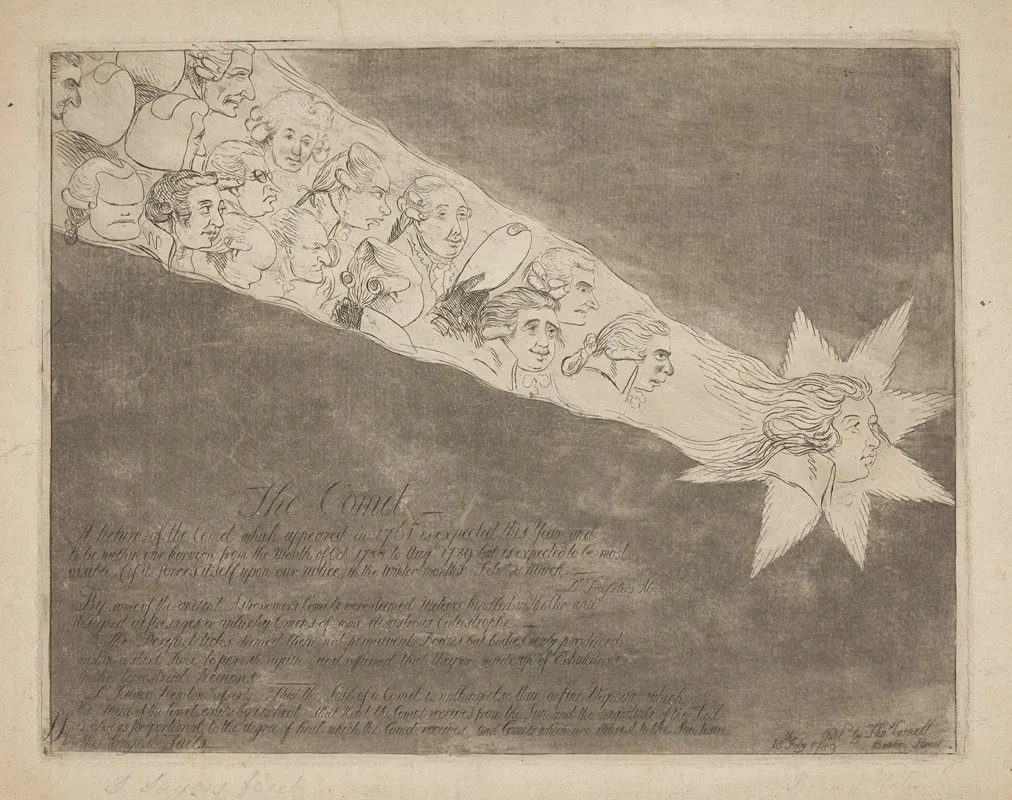 The Comet
A Return of the Comet which appeared in 1761 is expected this Year and
to be within our horizon from the Month of Oct 1788 to Aug 1789 but is expected to be most
visible (if it forces itself upon our notice) in the Winter months Feby & March
By some of the ancient Astronomers Comets were deemed Meteors kindled in the Air and
designed as Presages or unlucky Omens of some disastrous Catastrophe
The Peripateticks deemed them not permanent Bodies but bodies newly produced
and in a short time to perish again and affirmed that they were made up of Exhalations
in the terrestrial Regions
Sr Isaac Newton asserts That the Tail of a Comet is nothing else than a fine Vapour which
the Head of the Comet emits by its heat that heat the Comet receives from the Sun and the magnitude of the Tail
is always proportional to the degree of heat which the Comet receives and Comets which are nearest to the Sun have
the longest Tails
Publ by Thos Cornell
Bruton Street